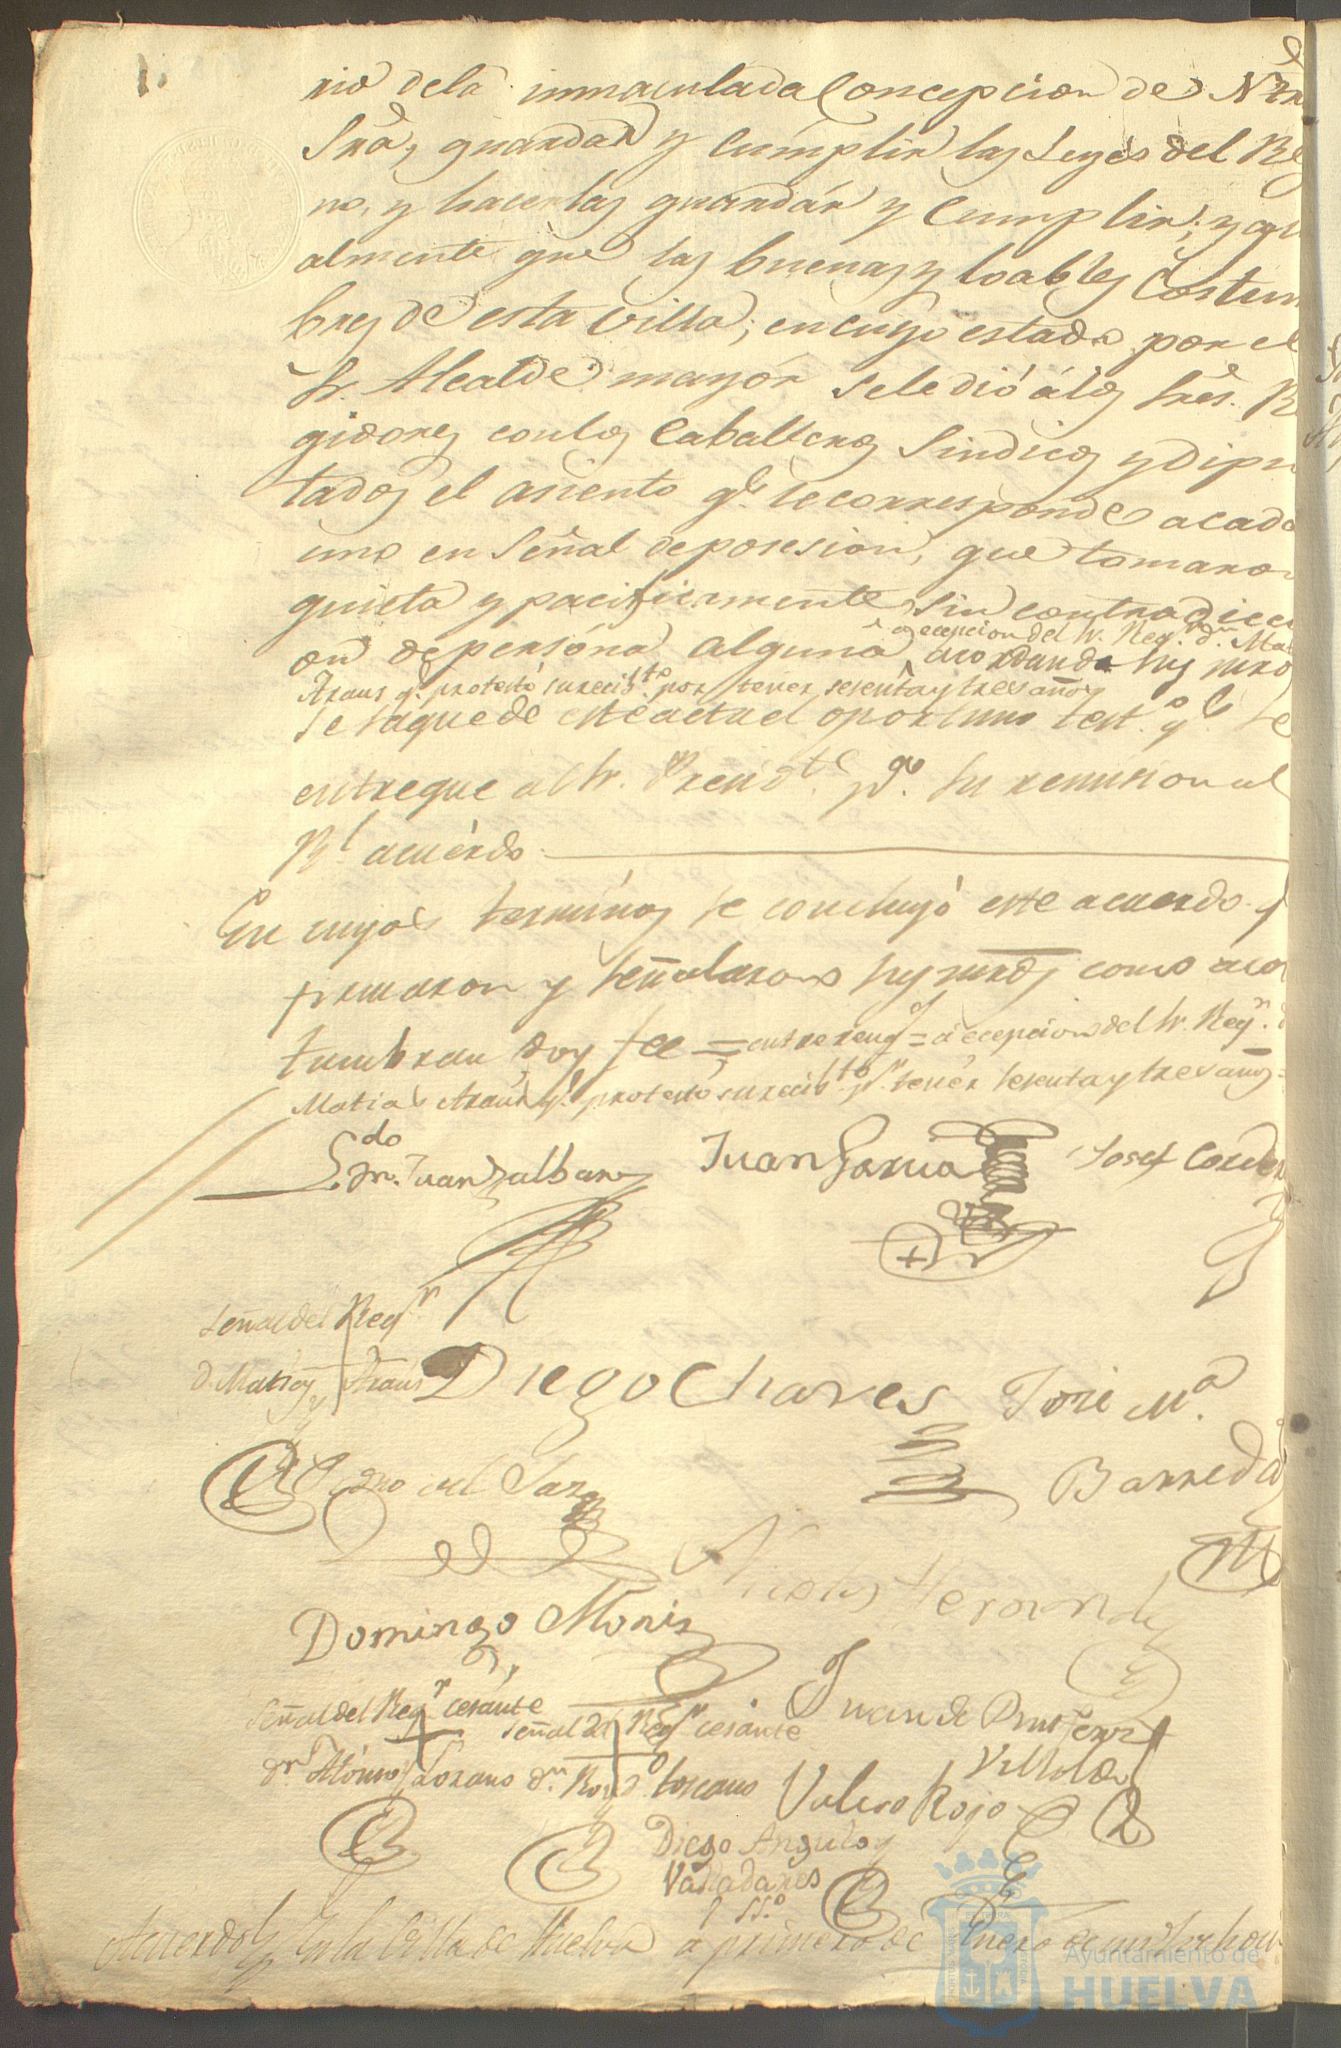 1.
rio dela inmaculada Concepcion de Ntra
Srâ, guardar y Cumplir las Leyes del Re
no, y hacerlas guardár y Cumplir; y igu
almente que las buenas y loables Costum
bres de esta Villa; en cuyo estado por el
Sr. Alcalde mayor se le dió á los Sres. R
gidores con los Caballeros Sindicos y Dipu
tados el asiento qe. le corresponde a cada
uno en Señal de posesion, que tomaron
quieta y pacificamente sin contradicci
on de persona alguna, acordando sus mrds
a ecepcion del Sr. Regr. dn. Mat
Araus qe. protestó su recibto. por tener sesenta y tres años
se saque de este acta el oportuno testo. qe. se
entregue al Sr. Presidte. pa. su remision al
Rl. acuérdo
En cuyos terminos se concluyó este acuerdo q
firmaron y señalaron sus mrds como acos
tumbran doy fee = entrerengs = a ecepcion del Sr. Regr. d
Matias Araus qe. protestó su recibto. pr. tenér sesenta y tres años =
Ldo. dn. Juan Zalbarez
Juan Garcia
Josef Corder
Señal del Regr.
D. Matias Araus
Diego Chaves
José Ma.
Barreda
Pedro del Saz
Nicolas Hernandez
Domingo Moriz
Juan de
Señal del Regr. cesante
dn. Alonso Lozano
Señal del Regr. cesante
dn. Rodo. toscano
Valero Rojo
Diego Angulo y
Valladares
SSo.
Acuerdo En la Villa de Huelva a primero de Enero de mil ochoci
Ayuntamiento de
HUELVA